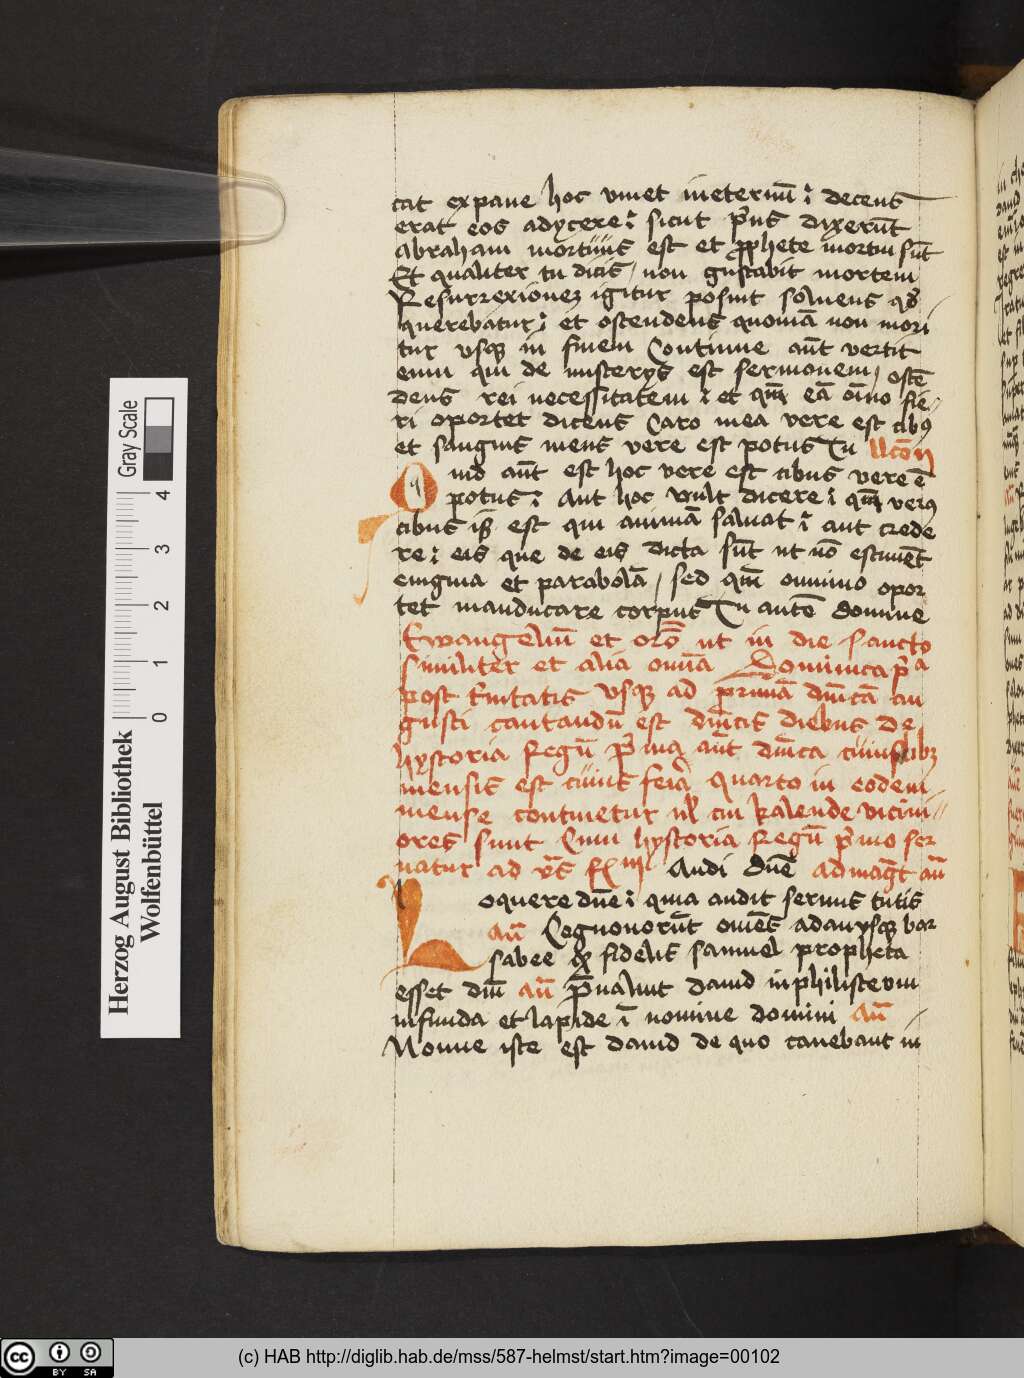 cat ex pane hoc viuet in eternū : decens
erat eos adycere : sicut p̄us dixerūt
abraham mortuus est et ꝓphete mortui sūt
Et qualiter tu dicis / non gustabit mortem
Resurrexionez igitur posuit soluens qd̄
querebatur : et ostendens quoniā non mori
tur vsqꝫ in finem Continue aūt vertit
enim qui de misterys est sermonem / ostē
dens rei necessitatem : et qm̄ eā oīno fie
ri oportet dicens Caro mea vere est cibꝯ
et sanguis meus vere est potus Tu
Quid aūt est hoc vere est cibus vere ē
potus : Aut hoc vult dicere : qm̄ verꝯ
cibus is est qui animā saluat : aut crede
re : eis que de eis dicta sūt ut nō estiment
enigma et parabolā / sed qm̄ omnino opor
tet manducare corpus Tu autē domine
Ewangeliū et orō ut in die sancto
similiter et alia omīa Dominica p̄a
post Tinitatis vsqꝫ ad primā dm̄cā au
gusti cantandū est dm̄cis diebus de
hystoria Regū p̄ma aūt dm̄ca cuiuslibꝫ
mensis est cuius feia quarto in eodem
mense continetur ul cui kalende vicini
ores sunt Cum hystoria Regū p̄mo ser
uatur ad Audi dn̄e ad magt an̄
Loquere dn̄e : quia audit seruus tuus
an̄ Cognouerūt om̄es a dan vsqꝫ bar
sabee fidelis samuel propheta
esset dn̄i an̄ P̄ualuit dauid in philisteum
in funda et lapide ī nomine domini an̄
Nonne iste est dauid de quo canebant in
Gray Scale
4 3 2 1 0
Herzog August Bibliothek
Wolfenbüttel
cc BY SA
(c) HAB http://diglib.hab.de/mss/587-helmst/start.htm?image=00102